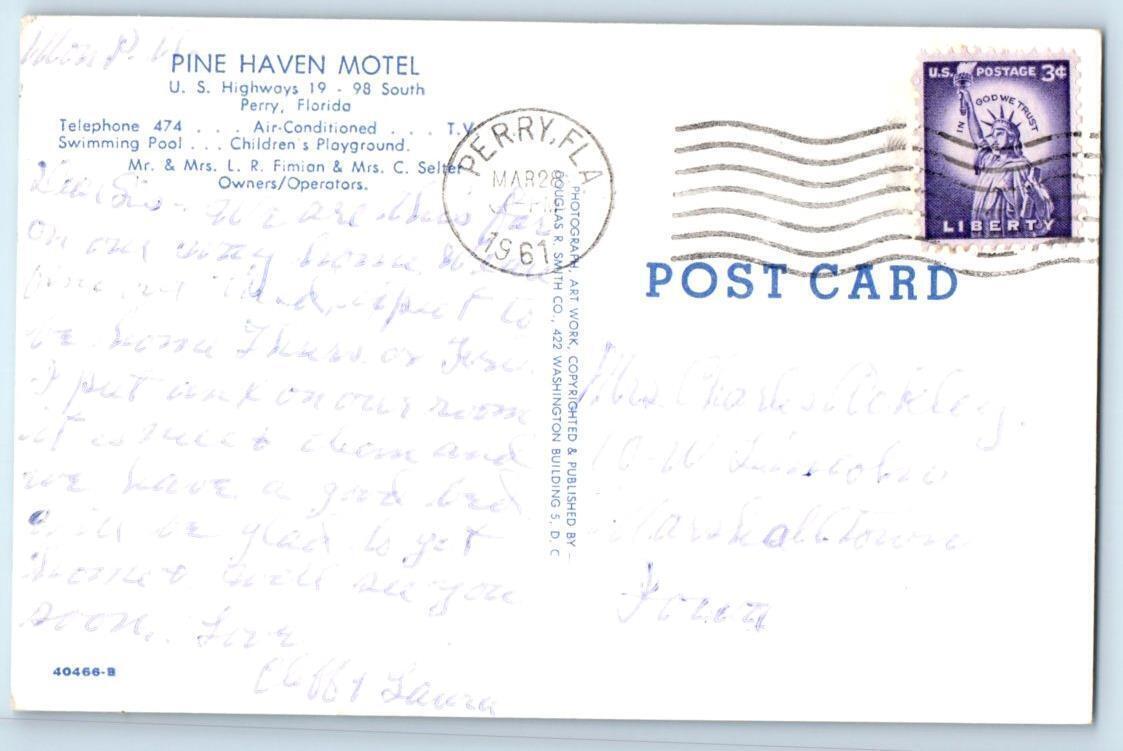 Mon P. M.
PINE HAVEN MOTEL
U. S. Highways 19 - 98 South
Perry, Florida
Telephone 474 . . . Air-Conditioned . . . T.V.
Swimming Pool . . . Children's Playground.
Mr. & Mrs. L. R. Fimian & Mrs. C. Selter
Owners/Operators.
We are this far
on our way home
expect to
be home Thurs. or
I put an x on our room
it is neat & clean and
we have a good bed
will be glad to get
home & will see you
soon. Love
Cliff & Laura
40466-B
PHOTOGRAPH, ART WORK, COPYRIGHTED & PUBLISHED BY –
DOUGLAS R. SMITH CO., 422 WASHINGTON BUILDING 5, D. C
PERRY, FLA
MAR 2
1961
U.S. POSTAGE 3¢
IN GOD WE TRUST
LIBERTY
POST CARD
Mrs. Charles Ackley
10-W Lincoln
Marshalltown
Iowa